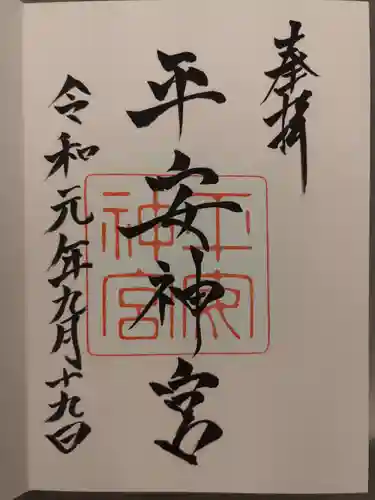 奉拝
平安神宮
平安神宮
令和元年九月十九日